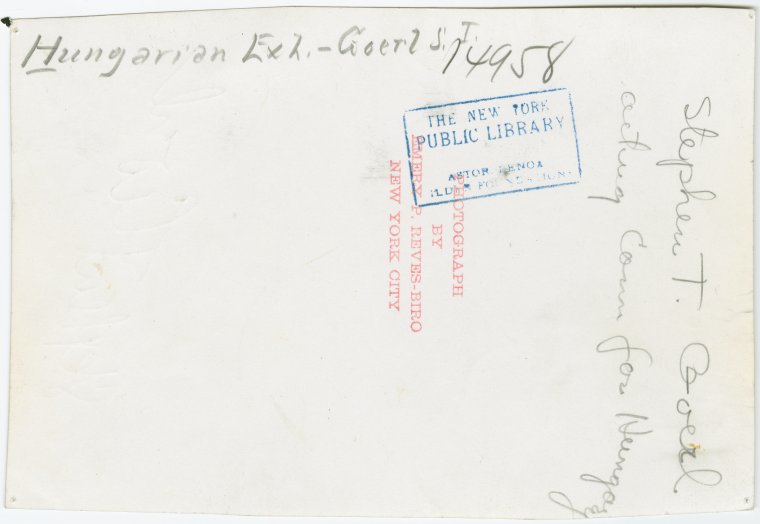 Hungarian Exh. - Goerl S. T.
14958
THE NEW YORK
PUBLIC LIBRARY
ASTOR LENOX
TILDEN FOUNDATIONS
PHOTOGRAPH
BY
EMERY P. REVES-BIRO
NEW YORK CITY
Stephen T. Goerl
acting Comm for Hungary